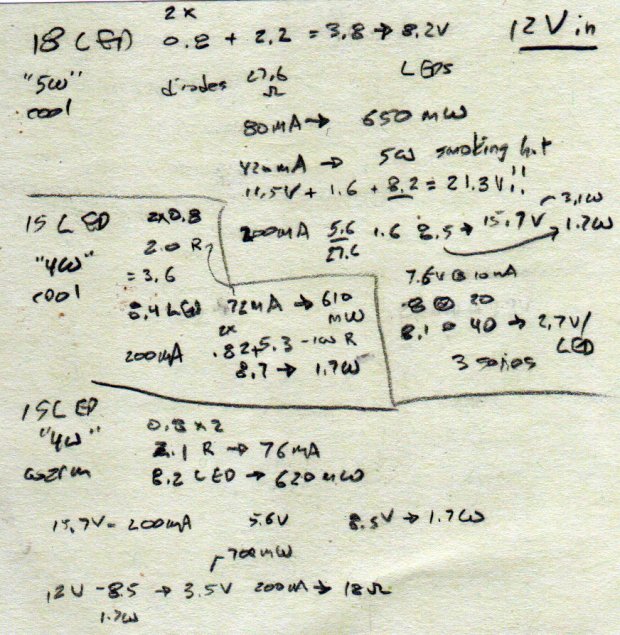 2x
18 LED 0.8 + 2.2 = 3.8 → 8.2V 12V in
"5W" diodes 27.6 Ω LEDs
cool
80mA → 650 mW
420mA → 5W smoking hot
11.5V + 1.6 + 8.2 = 21.3V!!
15 LED 2x0.8 200mA 5.6 1.6 8.5 → 15.7V 3.1W
2.0 R 27.6 1.7W
"4W" = 3.6 7.6V @ 10mA
cool 8 @ 20
8.4 LED 72mA → 610 mW 8.1 @ 40 → 2.7V/LED
2x
200mA .82 + 5.3 -1W R 3 series
8.7 → 1.7W
15 LED 0.8 x 2
"4W" 2.1 R → 76mA
warm 8.2 LED → 620mW
15.7V = 200mA 5.6V 8.5V → 1.7W
700mW
12V - 8.5 → 3.5V 200mA → 18Ω
1.7W